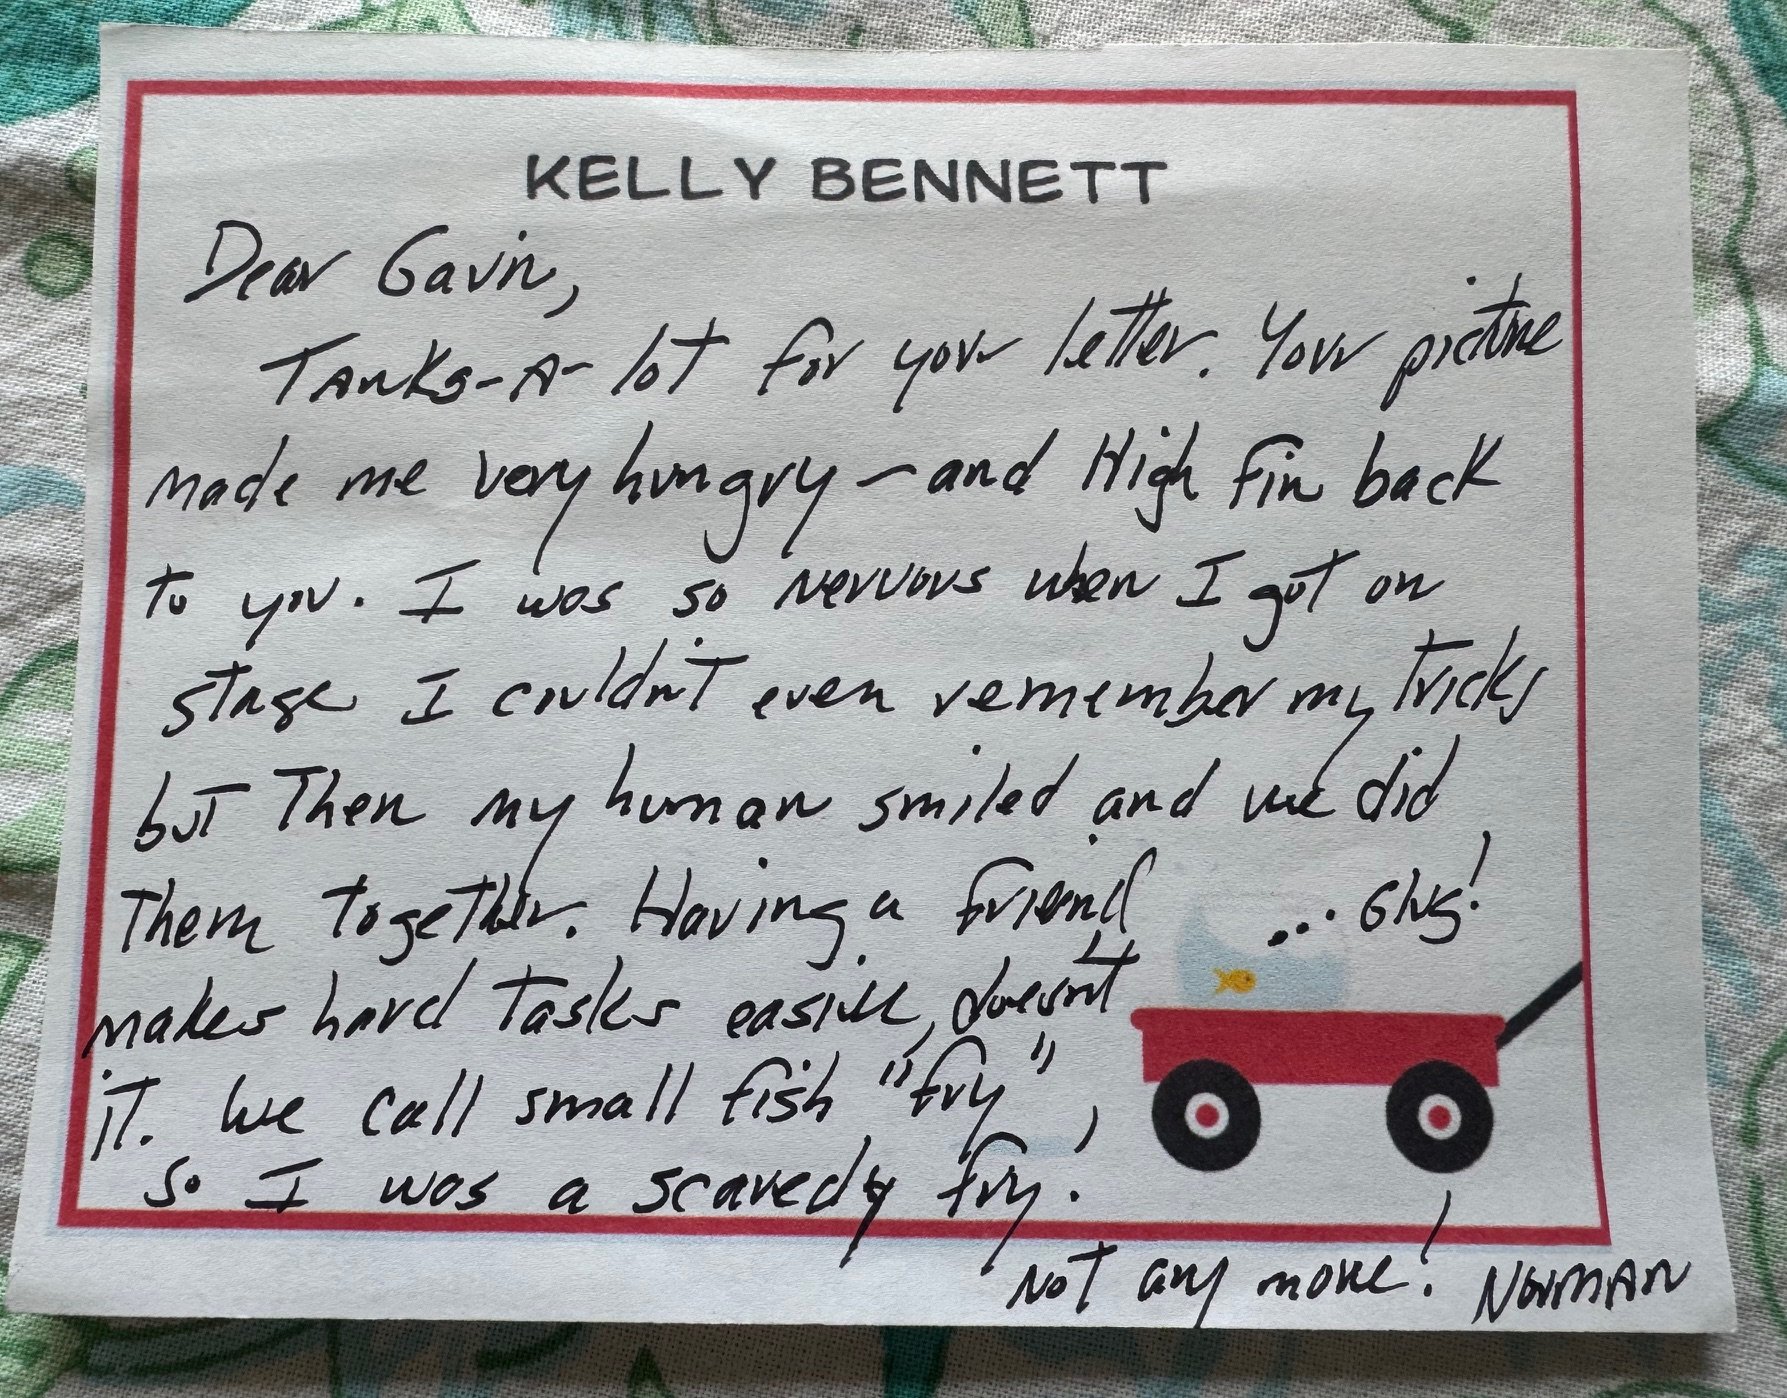 KELLY BENNETT
Dear Gavin,
Tanks-A-lot for your letter. Your picture
made me very hungry - and High Fin back
to you. I was so nervous when I got on
stage I couldn't even remember my tricks
but Then my human smiled and we did
Them together. Having a friend
... Glug!
makes hard tasks easier, doesn't
it. We call small fish "fry",
so I was a scaredy fry!
Not any more! Norman